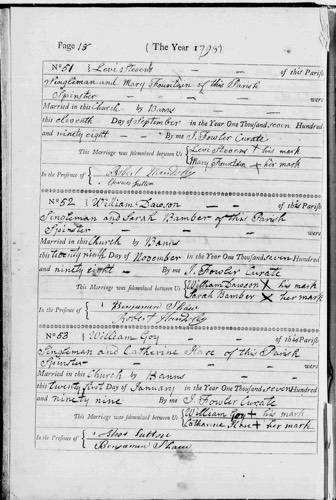 Page 18 (The Year 1798)
No 51 Levi Stevens — — of this Parish
Singleman and Mary Fountain of this Parish
Spinster — — — were
Married in this Church by Banns
this eleventh Day of September in the Year One Thousand seven Hundred
and ninety eight — By me J. Fowler Curate
This Marriage was solemnized between Us Levi Stevens + his mark
Mary Fountain + her mark
In the Presence of Robert
Sutton
No 52 William Dawson — of this Parish
Singleman and Sarah Bamber of this Parish
Spinster — — — were
Married in this Church by Banns
this twenty ninth Day of November in the Year One Thousand seven Hundred
and ninety eight — By me J. Fowler Curate
This Marriage was solemnized between Us William Dawson X his mark
Sarah Bamber X her mark
In the Presence of Benjamin Shaw
Robert
No 53 William Goy — of this Parish
Singleman and Catherine of this Parish
Spinster — — — were
Married in this Church by Banns
this twenty first Day of January in the Year One Thousand seven Hundred
and ninety nine By me J. Fowler Curate
This Marriage was solemnized between Us William Goy + his mark
Catharine + her mark
In the Presence of Sutton
Benjamin Shaw